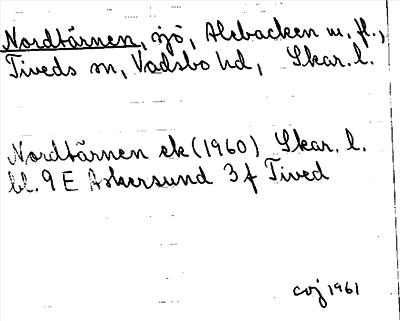 Nordtärnen, sjö, Alebacken m. fl.,
Tiveds sn, Vadsbo hd, Skar. l.
Nordtärnen ek (1960) Skar. l.
bl. 9 E Askersund 3 f Tived
cvj 1961